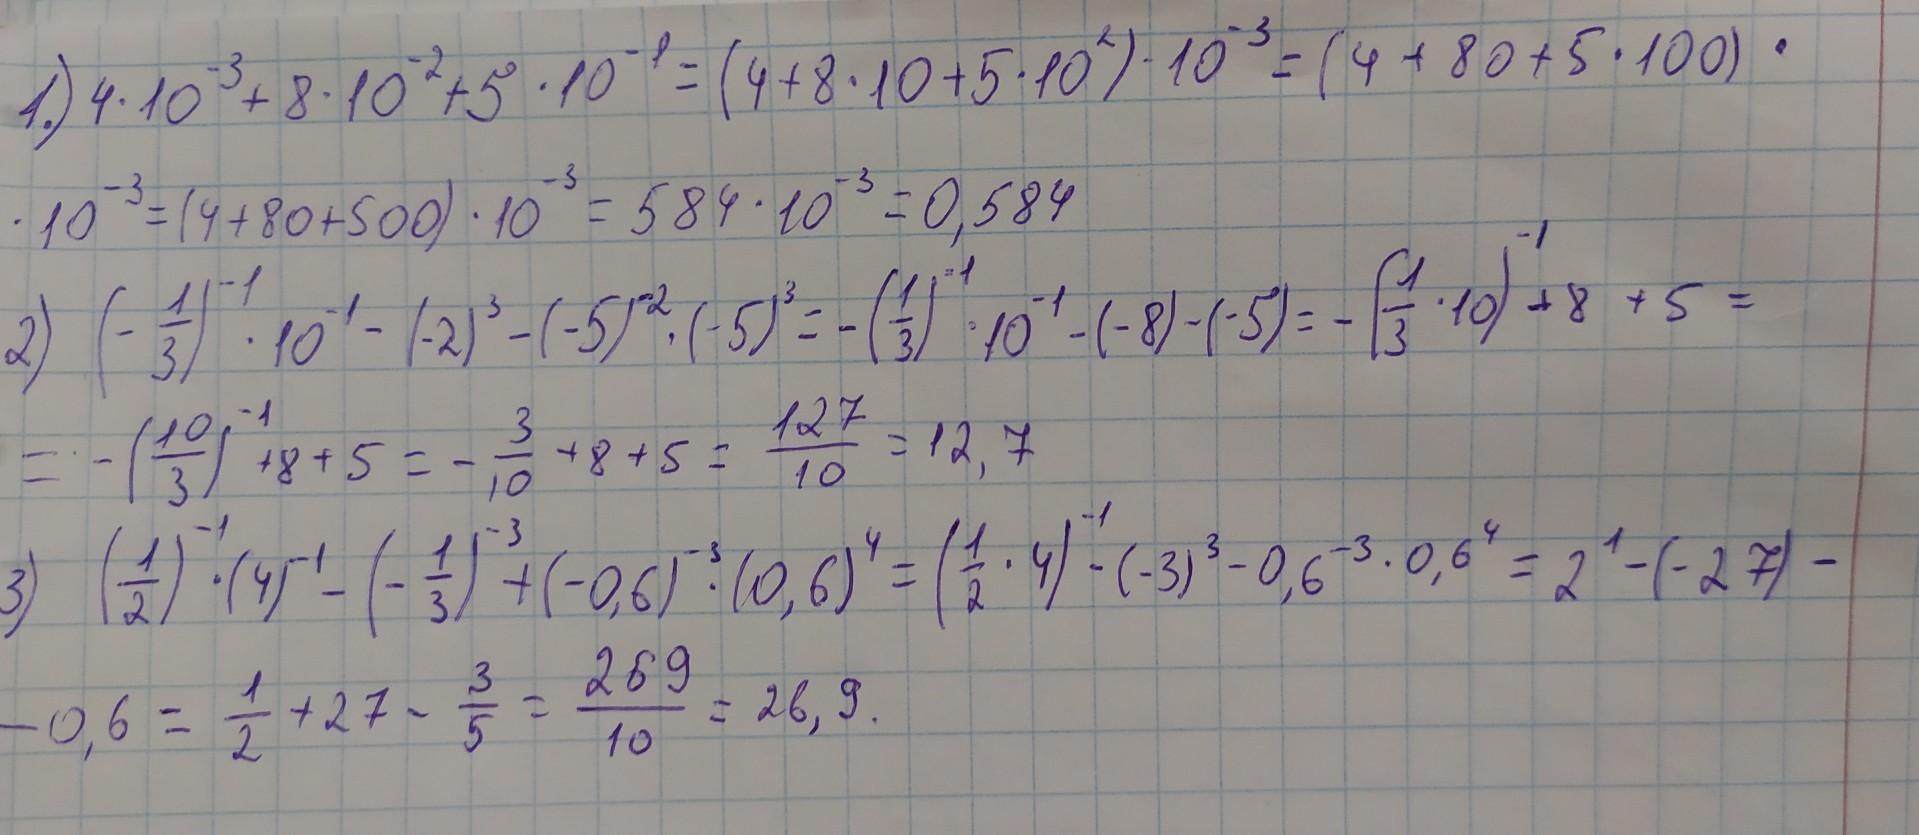 1.) 4·10⁻³+8·10⁻²+5·10⁻¹=(4+8·10+5·10²)·10⁻³=(4+80+5·100)·
·10⁻³=(4+80+500)·10⁻³=584·10⁻³=0,584
2) (-1/3)⁻¹·10⁻¹-(-2)³-(-5)⁻²·(-5)³=-(1/3)⁻¹·10⁻¹-(-8)-(-5)=-(1/3·10)⁻¹+8+5=
=-(10/3)⁻¹+8+5=-3/10+8+5=127/10=12,7
3) (1/2)⁻¹·(4)⁻¹-(-1/3)⁻³+(-0,6)⁻³·(0,6)⁴=(1/2·4)⁻¹-(-3)³-0,6⁻³·0,6⁴=2¹-(-27)-
-0,6=1/2+27-3/5=269/10=26,9.